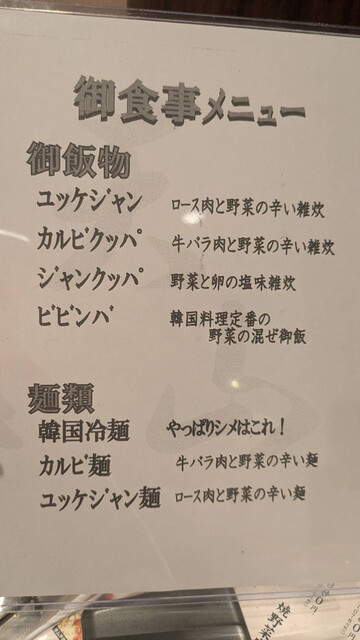 御食事メニュー
御飯物
ユッケジャン ロース肉と野菜の辛い雑炊
カルビクッパ 牛バラ肉と野菜の辛い雑炊
ジャンクッパ 野菜と卵の塩味雑炊
ビビンバ 韓国料理定番の
野菜の混ぜ御飯
麺類
韓国冷麺 やっぱりシメはこれ!
カルビ麺 牛バラ肉と野菜の辛い麺
ユッケジャン麺 ロース肉と野菜の辛い麺
焼野菜